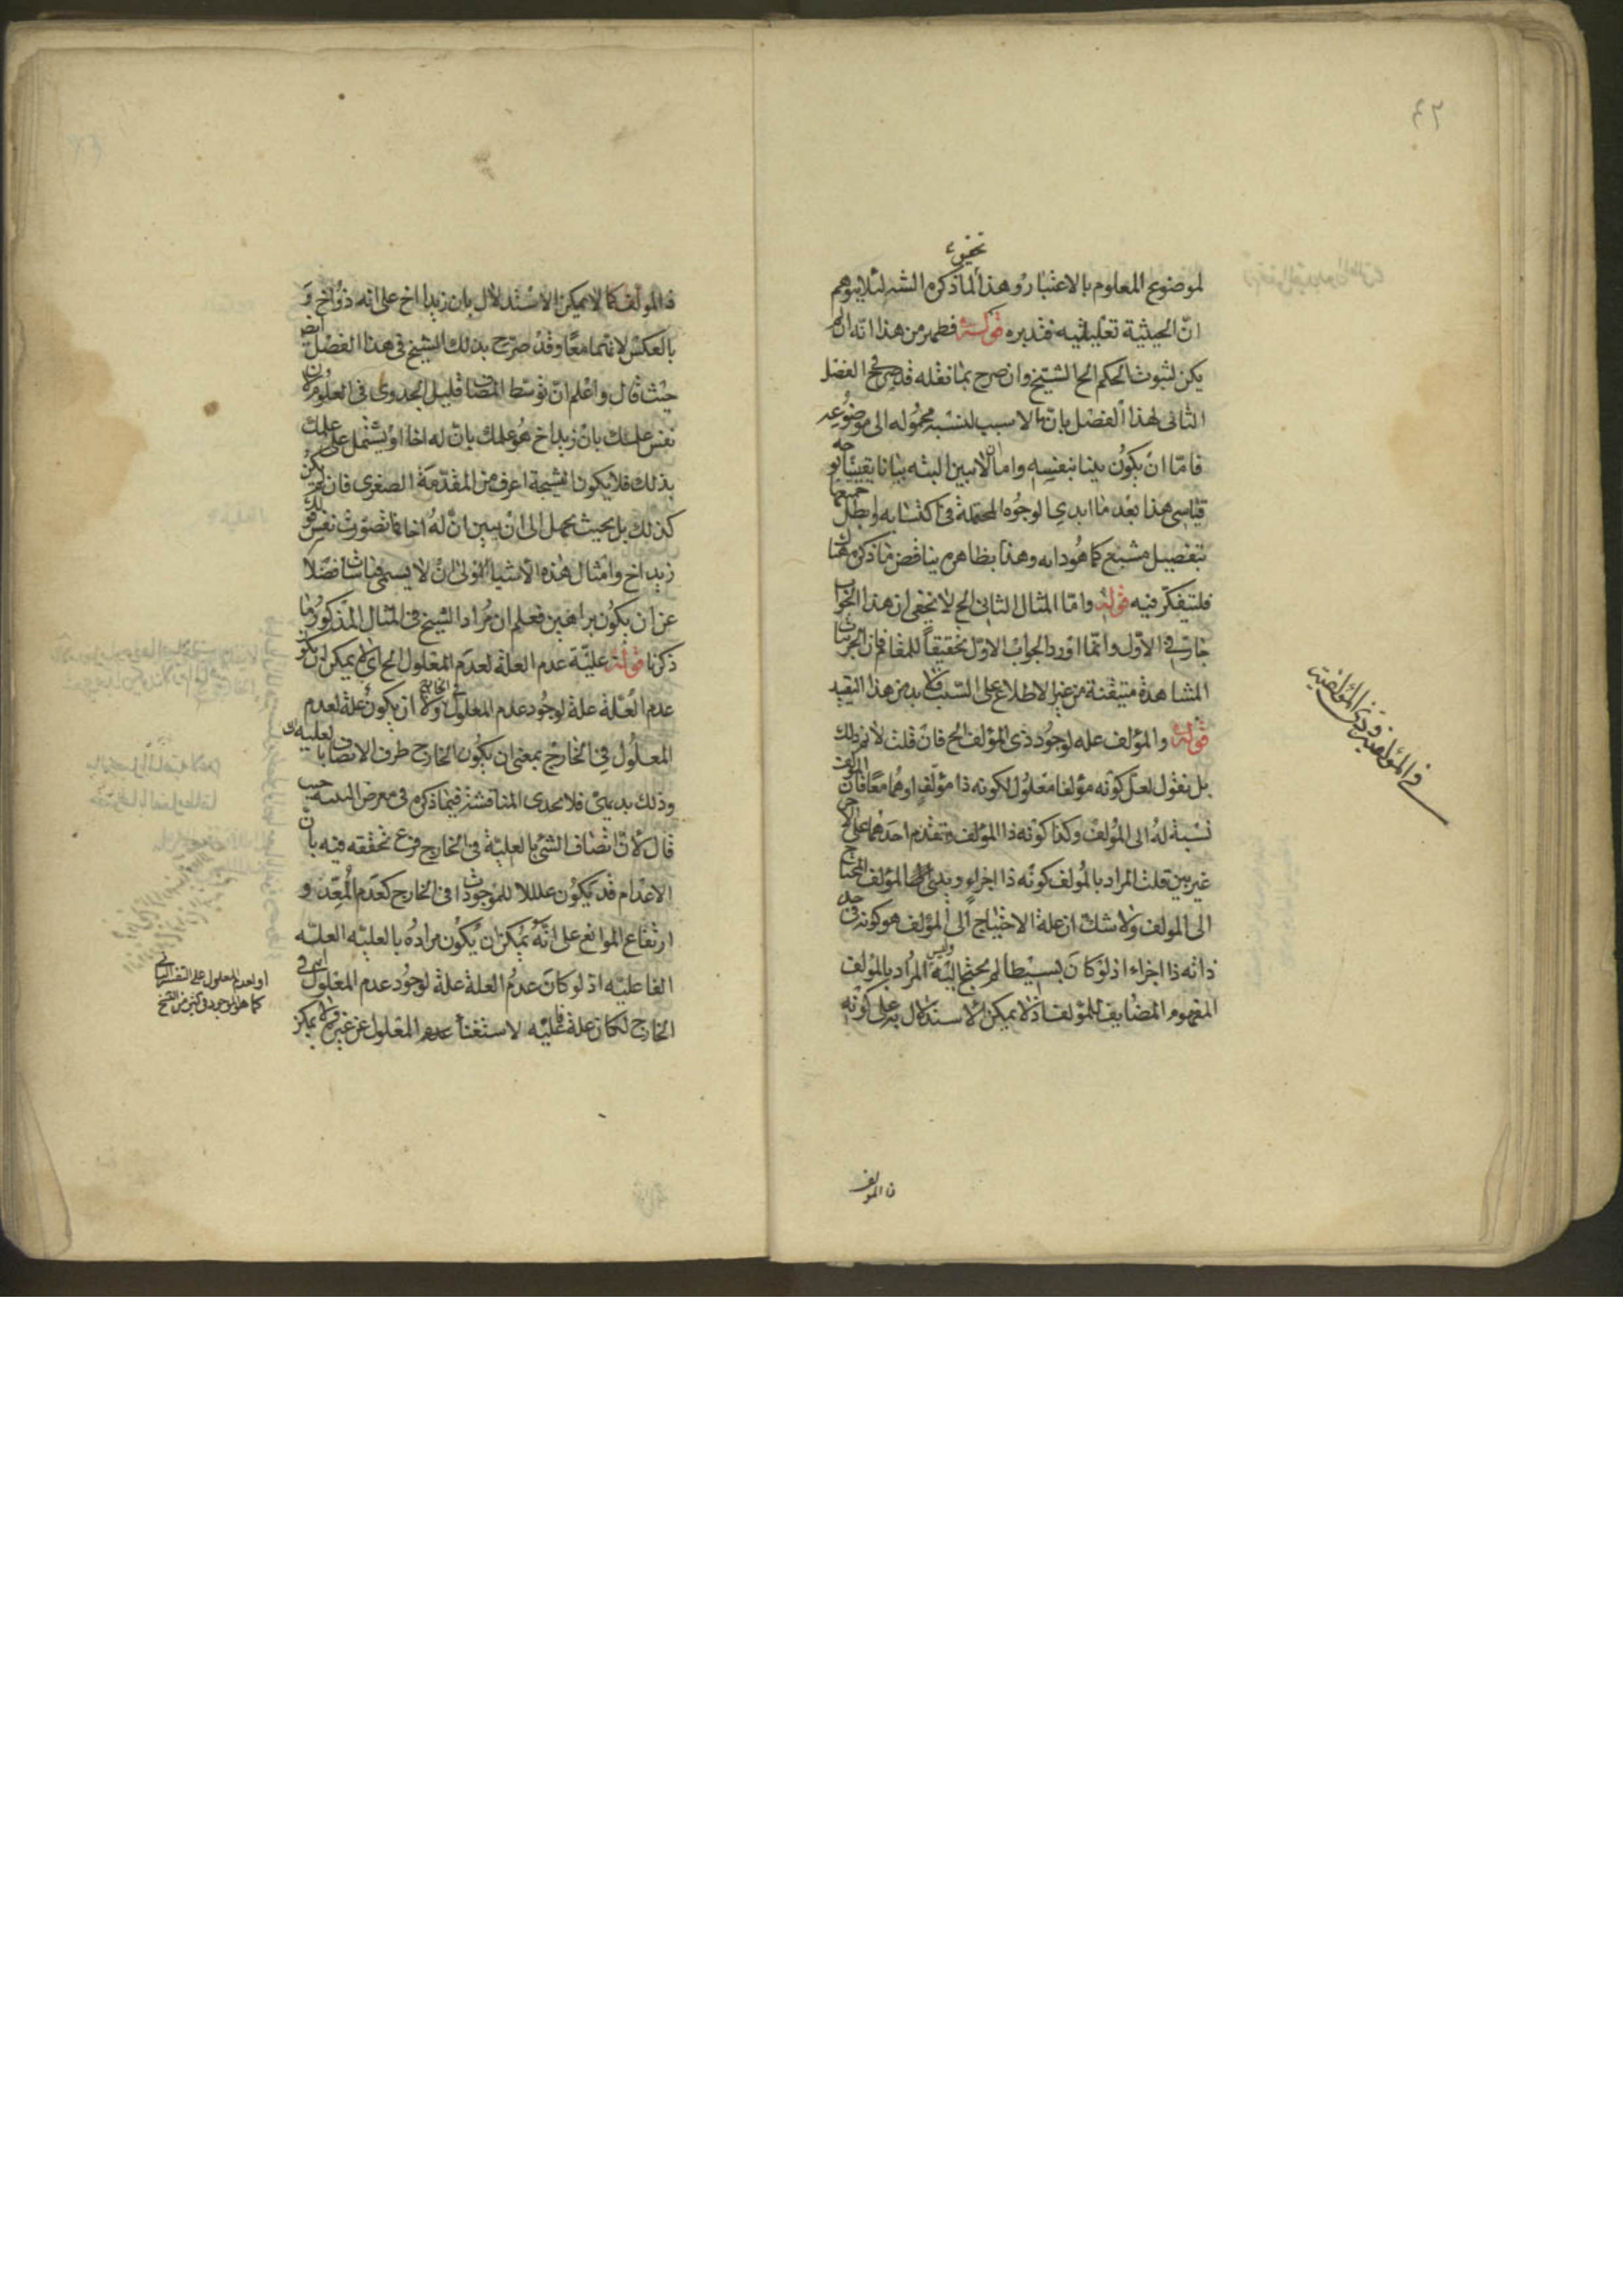 تحقيق
لموضوع المعلوم بالاعتبار وهذا لما ذكره الش لئلا يتوهم
انّ الحيثية تعليلية فتدبره قوله فظهر من هذا انه ان لم
يكن لثبوت الحكم الخ الشيخ وان صرح بما نقله قد صرح في الفصل
الثانى لهذا الفصل بان ما لا سبب لنسبة محموله الى موضوعه
فامّا انْ يكوُن بينا بنفسِه واما ان لا يبين البته بيانا يقينيا بوجه
قياسى هذا بعْد ما ابدى الوجُوه المحتملة فى اكتسابه وابطل جميعها
بتفصيل مشبع كما هُو دابه وهذا بظاهره يناقض ما ذكره هنا
فليتفكّر فيه قوله وامّا المثال الثانى الخ لا يخفى ان هذا الجواب
جار فى الاوّل وانمّا اورد الجواب الاوّل تحقيقاً للمقام فان الجزئيات
المشاهدة متيقنة من غير الاطلاع على السّبب فلا بد من هذا التقييد
قوله والمؤلف علة لوجُود ذى المؤلف الخ فان قلت لا نم ذلك
بل نقول لعلّ كونه مؤلفا معْلُول لكونه ذا مؤلّفٍ او هُما معًا فان المؤلف
نسْبة لهُ الى المُؤلف وكذا كوْنه ذا المؤلف فتقدم احدهما على الاخر
غير بين قلت المراد بالمُولف كونه ذا اجزاءٍ وبذى المؤلف المحتاج
الى المولف ولا شك ان علة الاحتياج الى المؤلف هو كونه فى حد
ذاته ذا اجزاء اذ لوْ كانَ بسيْطا لم يحتج اليْه وليس المرُاد بالمؤلف
المفهوم المضُايف للمؤلف اذ لا يمكن الاستدلال به على كونه
فى المؤلفية وذى المؤلفية
ذ المولف
ذ المولف كما لا يمكن الاسْتدلال بان زيدا اخ على انه ذوُ اخ وَ
بالعكسْ لانهما معًا وقدْ صرّح بذلك الشيخ فى هذا الفصْل ايض
حيْث قال واعْلم انّ توسّط المضاف قليل الجدوى فى العلُوم لان
نفسْ علمك بانْ زيدا اخ هُو علمك بانّ له اخا اوْ يشْتمل على علمك
بذلك فلا يكون النتيجة اعرف من المقدّمة الصغرى فان لم يكن
كذلك بل بحيث يجهل الى انْ يبين انّ لهُ اخا فما تصوّرتْ نفس قولك
زيد اخ وامْثال هذه الاشيا الاولى انْ لا يسمى قياسات فضلا
عن ان يكوُن براهين فعلم ان مُراد الشيخ فى المثال المذكوُر ما
ذكرنا قوله عليّة عدم العلة لعدَم المعْلول الخ اى لا يمكن ان يكون
عدم العّلة علة لوجُود عدم المعلول فى الخارج ولا ان يكونُ علة لعدم
المعلوُل فِى الخارج بمعنى ان يكوُن الخارج ظرف الاتصاف بالعليه
وذلك بديهىْ فلا يجدى المناقشة فيْما ذكره فى معرض التنبيه حيث
قال لانّ اتصْاف الشئ بالعليّة فى الخارج فرع تحققه فيه بان
الاعْدام قد يكوُن عللا للموجودات فى الخارج كعدَم المُعِدّ و
ارتفاع الموانع على انّهُ يمُكن ان يكوُن مرادهُ بالعليّه العليّه
الفاعليّه اذ لو كانَ عدمُ العلة علة لوجُود عدم المعْلول فى
الخارج لكان علة فاعليّه لاستغنا عدم المعْلول عن غيره ولا يمكن
او لعدم المعلول على التفسير الثانى
كما هو الموجود فى كثير من النسخ